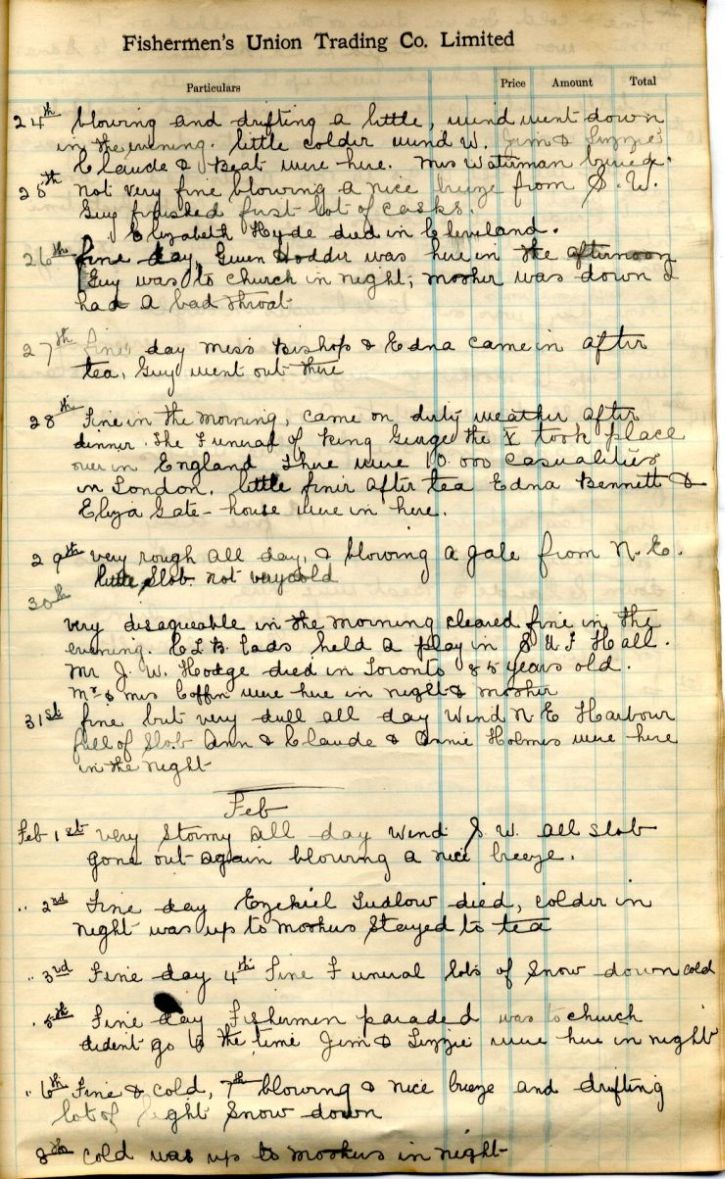 Fishermen's Union Trading Co. Limited
Particulars Price Amount Total
24th blowing and drifting a little, wind went down
in the evening. little colder wind W. Jim & Lizzie
Claude & Beat were here. Mrs Waterman buried.
25th not very fine blowing a nice breeze from S. W.
Guy finished first lot of casks.
Elizabeth Hyde died in Cleveland.
26th fine day, Gwen Hodder was here in the afternoon
Guy was to church in night; mother was down I
had a bad throat
27th fine day miss Bishop & Edna came in after
tea, Guy went out there
28th Fine in the morning, came on dirty weather after
dinner. The Funeral of King George the V took place
over in England There were 10.000 casualities
in London. little finir after tea Edna Bennett &
Eliza Gate-house were in here.
29th very rough all day, & blowing a gale from N. E.
little Slob. not very cold
30th
very disagueable in the morning cleared fine in the
evening. C L B. Lads held a play in S U F Hall.
Mr J. W. Hodge died in Toronto 85 years old.
Mr & Mrs Coffin were here in night & mother
31st fine but very dull all day Wind N E Harbour
full of Slob Ann & Claude & Annie Holmes were here
in the night
Feb
Feb 1st very Stormy all day Wind S W. all slob
gone out again blowing a nice breeze.
" 2nd Fine day Ezekiel Ludlow died, colder in
night was up to mothers Stayed to tea
" 3rd Fine day 4th Fine Funeral lots of Snow down cold
" 5th Fine day Fishermen paraded was to church
dident go to the time Jim & Lizzie were here in night
" 6th Fine & cold, 7th blowing a nice breeze and drifting
lot of light Snow down
8th cold was up to mothers in night